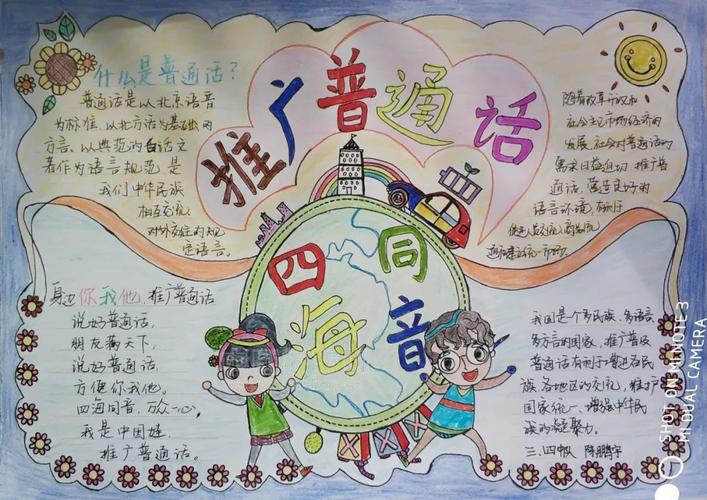 推广普通话
什么是普通话?
普通话是以北京语音
为标准,以北方话为基础的
方言,以典范的白话文
著作为语言规范,是
我们中华民族
相互交流
对外交往的规
定语言。
随着改革开放和
社会主义市场经济的
发展,社会对普通话的
需求日益迫切,推广普
通话,营造良好的
语言环境,有利于
四海
同音
身边你我他,推广普通话
说好普通话,
朋友满天下,
说好普通话,
方便你我他。
四海同音,万众一心,
我是中国娃,
推广普通话。
我国是个多民族、多语言、
多方言的国家,推广普及
普通话有利于增进各民
族各地区的交流,维护
国家统一,增强中华民
族的凝聚力。
三、四班 陈鹏宇
SHOT ON MI NOTE 3
MI DUAL CAMERA